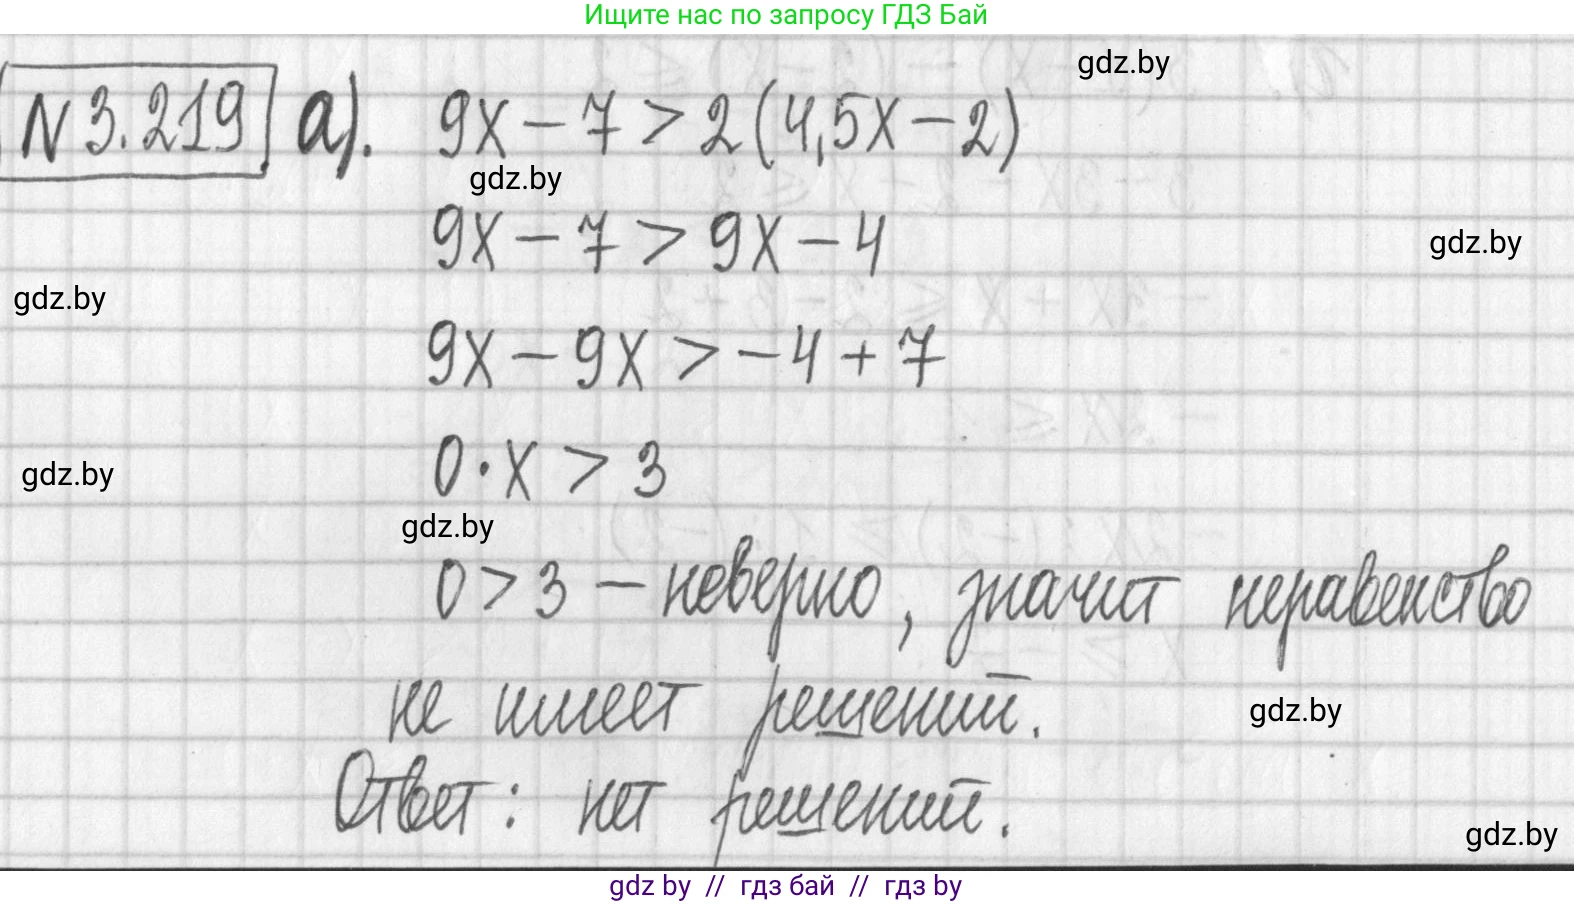 Ищите нас по запросу ГДЗ Бай
gdz.by
N 3.219 а). 9x - 7 > 2(4,5x - 2)
gdz.by
9x - 7 > 9x - 4
gdz.by
gdz.by
9x - 9x > -4 + 7
0 · x > 3
gdz.by
gdz.by
0 > 3 — неверно, значит неравенство
не имеет решений.
gdz.by
Ответ: нет решений.
gdz.by
gdz by // гдз бай // гдз by